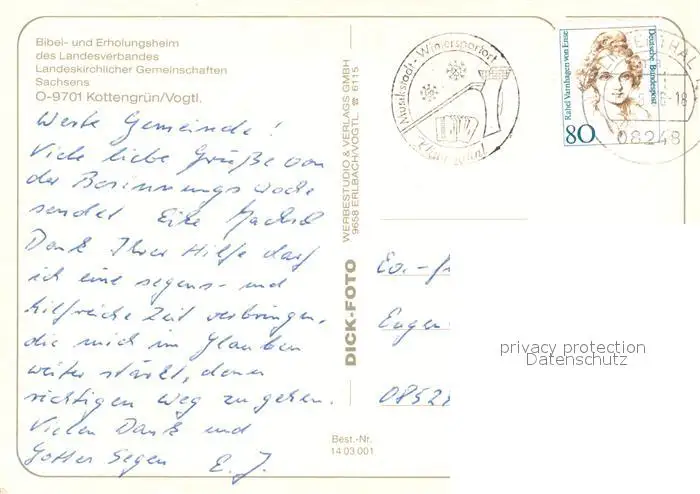 Bibel- und Erholungsheim
des Landesverbandes
Landeskirchlicher Gemeinschaften
Sachsens
O-9701 Kottengrün/Vogtl.
Werte Gemeinde!
Viele liebe Grüße von
der Besinnungswoche
sendet
Dank Ihrer Hilfe darf
ich eine segens- und
hilfreiche Zeit verbringen,
die mich im Glauben
weiter stärkt, den
richtigen Weg zu gehen.
Vielen Dank und
Gottes Segen E. J.
DICK-FOTO
WERBESTUDIO & VERLAGS GMBH
9658 ERLBACH/VOGTL. ☎ 6115
Best.-Nr.
14 03 001
Musikstadt - Wintersportort
Klingenthal
Rahel Varnhagen von Ense
Deutsche Bundespost
80
08248
Ev.-
Eugen
0852
privacy protection
Datenschutz